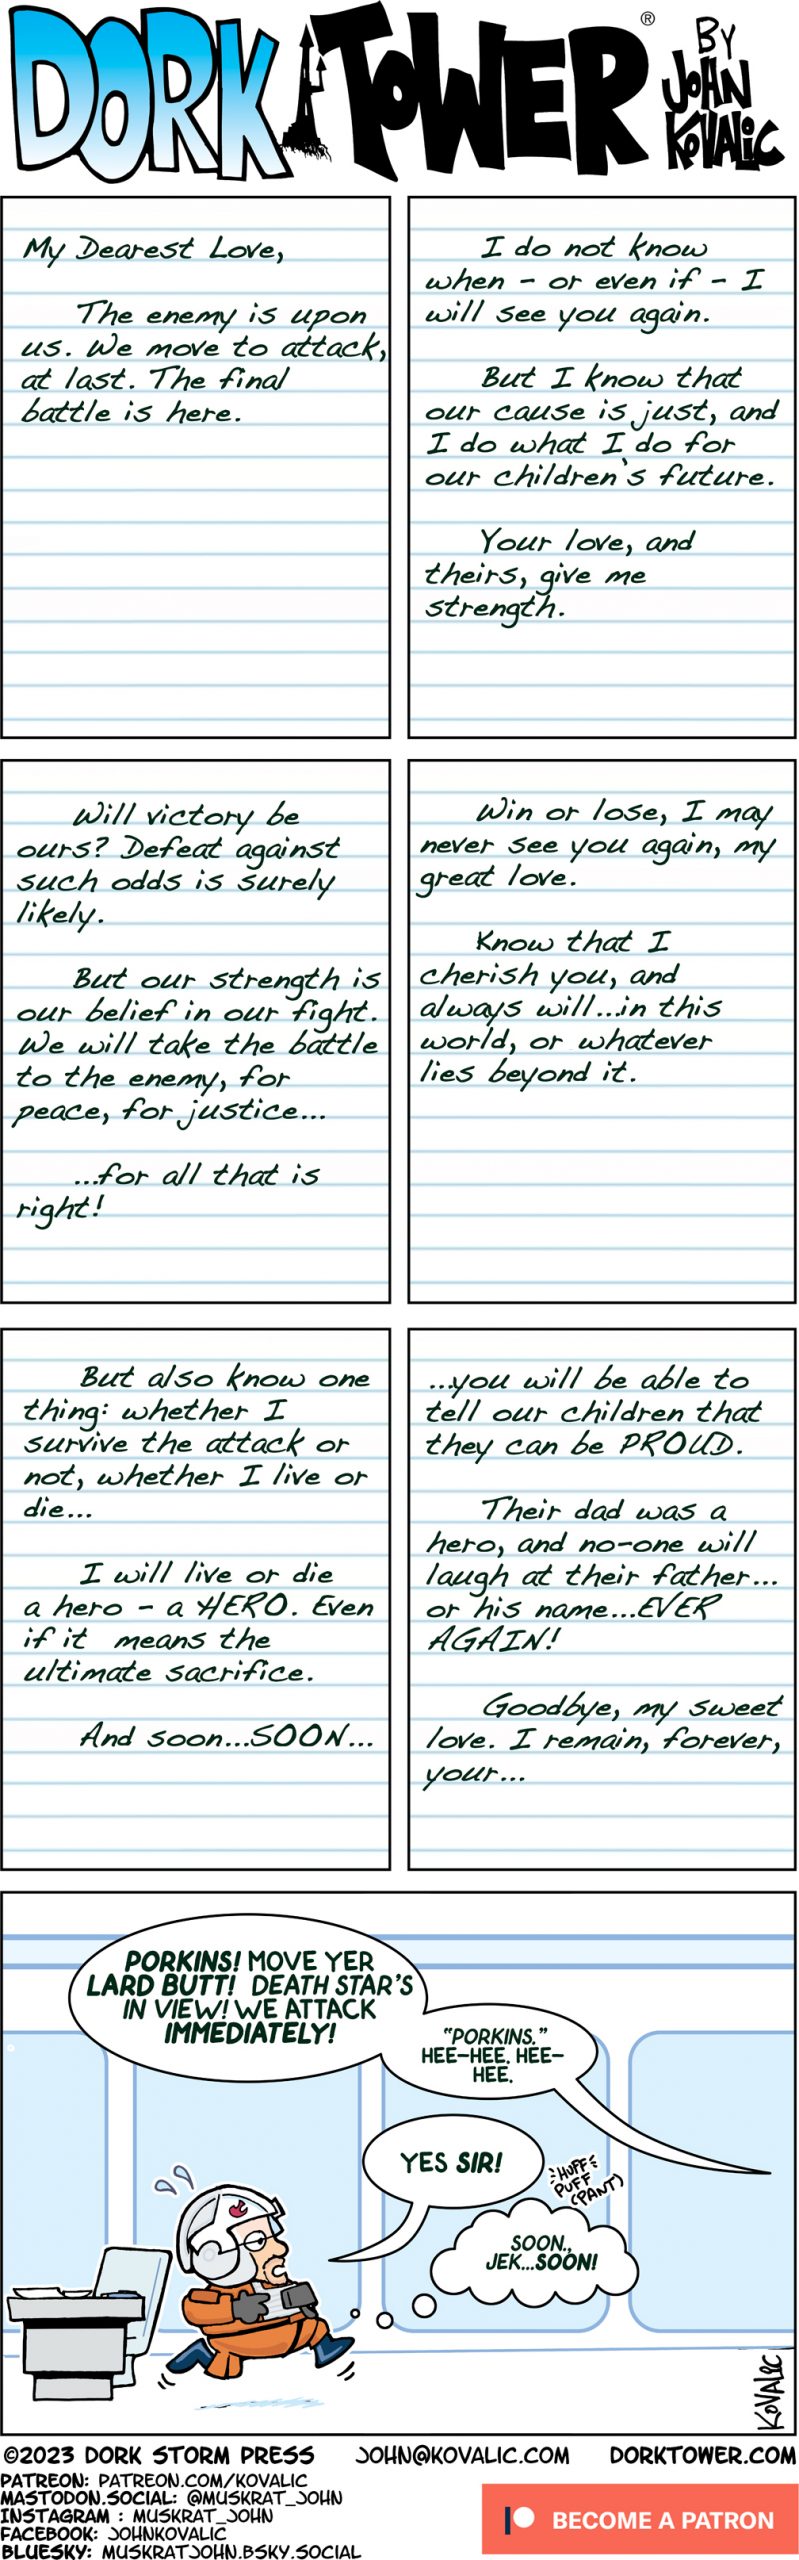 DORK TOWER ®
BY
JOHN
KOVALIC
My Dearest Love,
The enemy is upon
us. We move to attack,
at last. The final
battle is here.
I do not know
when - or even if - I
will see you again.
But I know that
our cause is just, and
I do what I do for
our children's future.
Your love, and
theirs, give me
strength.
Will victory be
ours? Defeat against
such odds is surely
likely.
But our strength is
our belief in our fight.
We will take the battle
to the enemy, for
peace, for justice...
...for all that is
right!
Win or lose, I may
never see you again, my
great love.
Know that I
cherish you, and
always will...in this
world, or whatever
lies beyond it.
But also know one
thing: whether I
survive the attack or
not, whether I live or
die...
I will live or die
a hero - a HERO. Even
if it means the
ultimate sacrifice.
And soon...SOON...
...you will be able to
tell our children that
they can be PROUD.
Their dad was a
hero, and no-one will
laugh at their father...
or his name...EVER
AGAIN!
Goodbye, my sweet
love. I remain, forever,
your...
PORKINS! MOVE YER
LARD BUTT! DEATH STAR'S
IN VIEW! WE ATTACK
IMMEDIATELY!
"PORKINS."
HEE-HEE. HEE-
HEE.
YES SIR!
HUFF
PUFF
(PANT)
SOON.,
JEK...SOON!
KOVALIC
©2023 DORK STORM PRESS JOHN@KOVALIC.COM DORKTOWER.COM
PATREON: PATREON.COM/KOVALIC
MASTODON.SOCIAL: @MUSKRAT_JOHN
INSTAGRAM : MUSKRAT_JOHN
FACEBOOK: JOHNKOVALIC
BLUESKY: MUSKRATJOHN.BSKY.SOCIAL
BECOME A PATRON